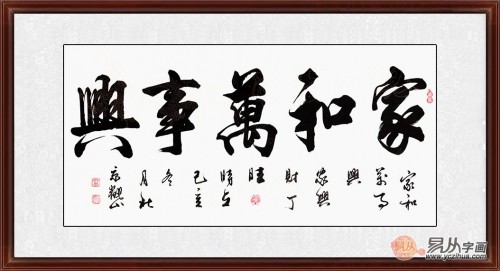 家和萬事興
家和
萬事
興
家興
財丁
旺
時在
己亥
冬
月北
京觀山
易从字画
www.yczihua.com